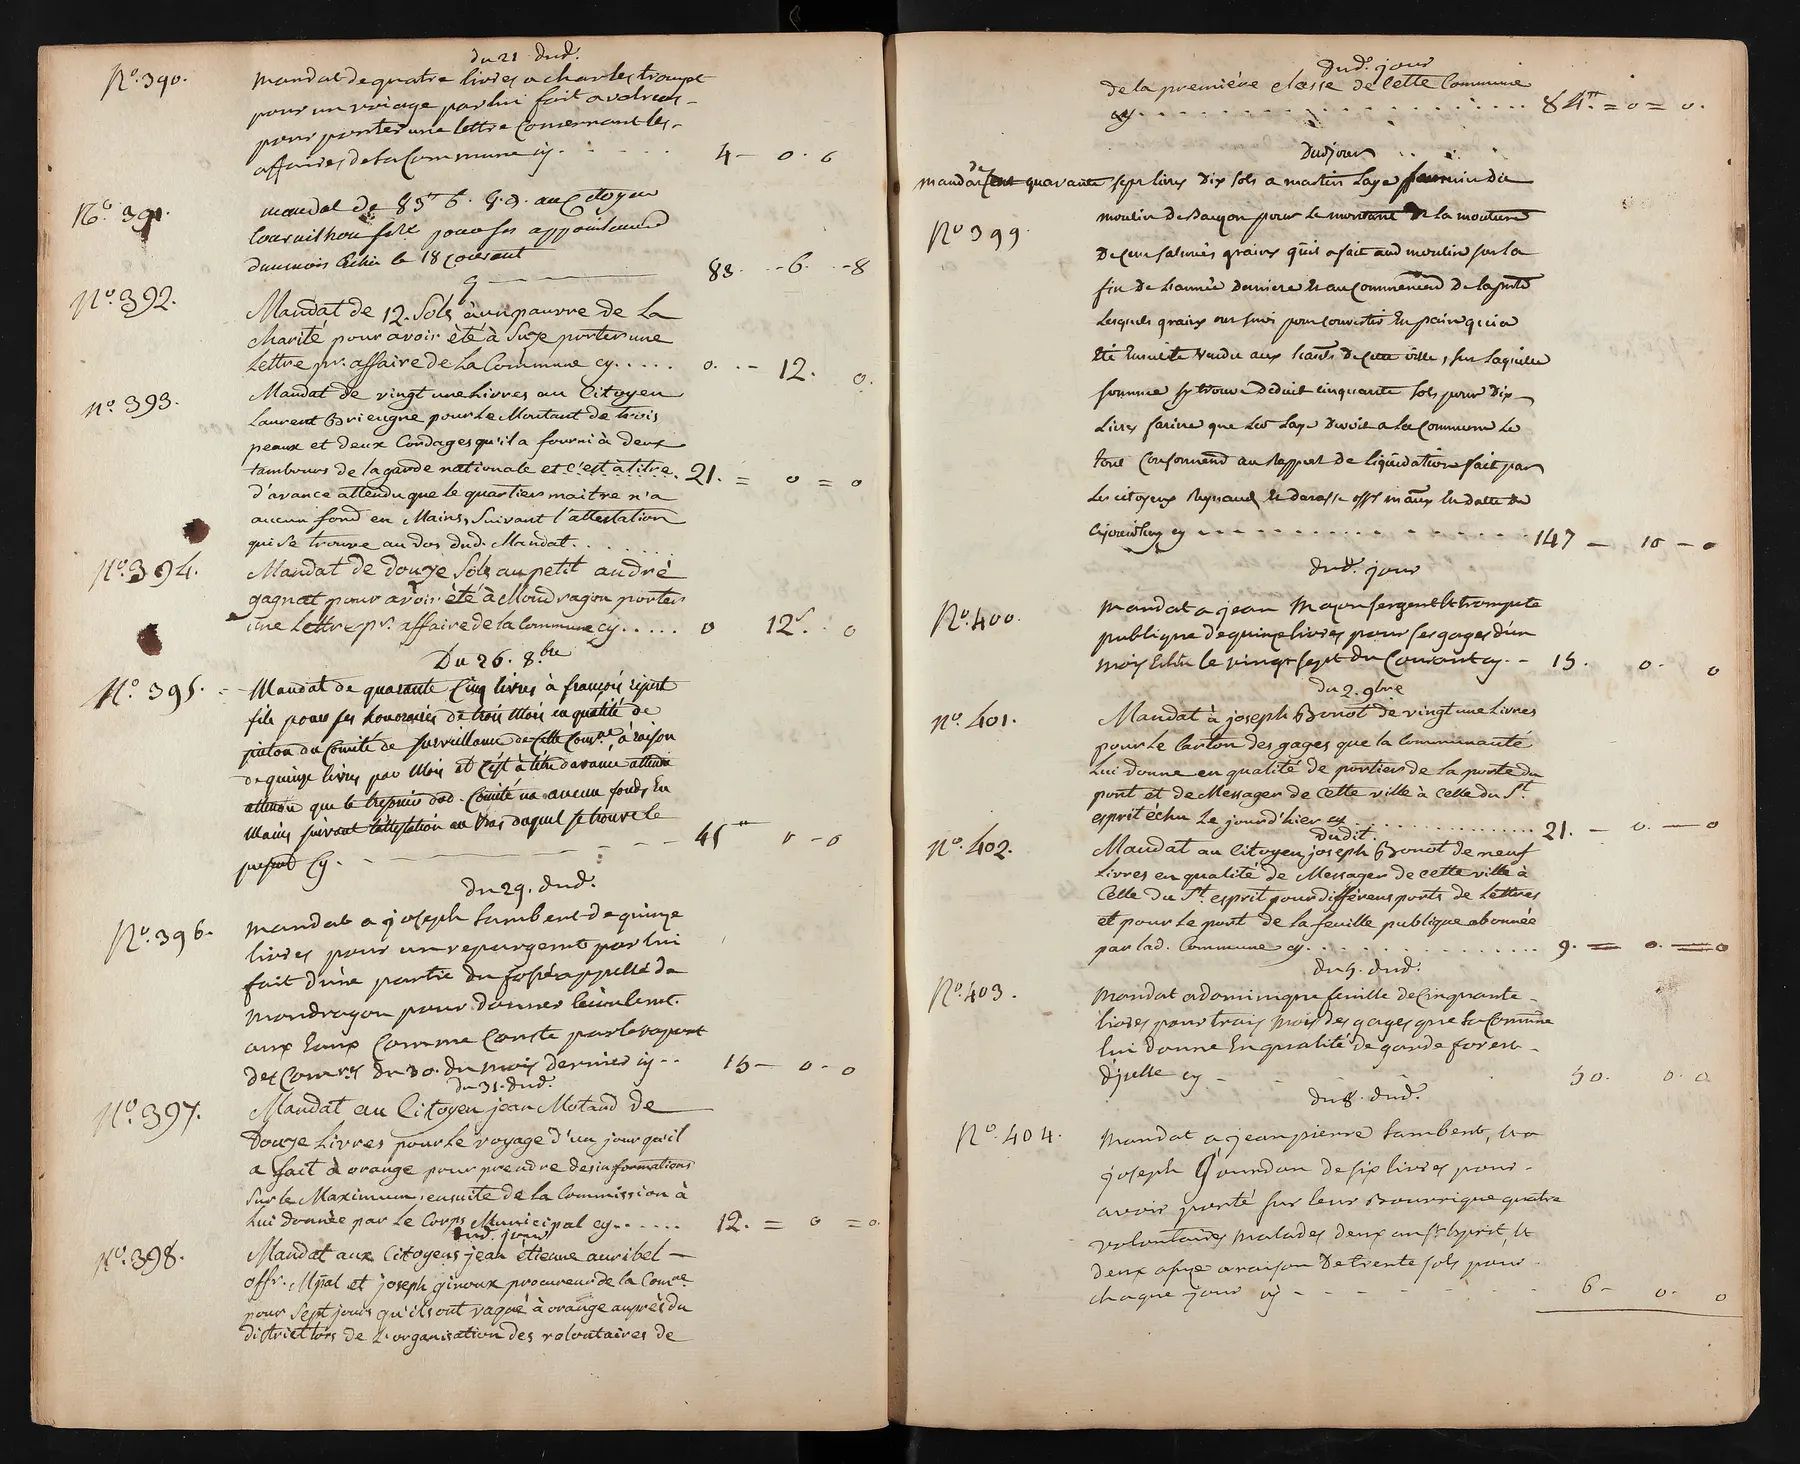 du 21 dud.
N.o 390. Mandat de quatre livres a charles trompt
pour un voiage par lui fait a valreas
pour porter une lettre Concernant les
affaires de la Commune cy. 4 - 0 . 0
N.o 391. mandat de 83tt 6. 8.d. au Citoyen
pour ses appointemens
d'un mois échu le 18 courant
cy 83. - 6. - 8
N.o 392. Mandat de 12. Sols à un pauvre de La
charité pour avoir été à Suze porter une
Lettre pr. affaire de La Commune cy..... 0. - 12. 0.
N.o 393. Mandat de vingt une Livres au Citoyen
Laurent Briengne pour Le Montant de trois
peaux et deux Cordages qu'il a fourni à deux
tambours de la garde nationale et c'est à titre 21. = 0 = 0
d'avance attendu que le quartier maitre n'a
aucun fond en Mains, Suivant l'attestation
qui se trouve au dos dud. Mandat.
N.o 394. Mandat de douze Sols au petit andré
gagnat pour avoir été à Mondragon porter
une Lettre pr. affaire de la Commune cy..... 0 12s. 0
Du 26. 8.bre
N.o 395. Mandat de quarante Cinq livres à françois ripert
fils pour ses honoraires de trois Mois en qualité de
pieton du Comité de Surveillance de cette Com.ne, à raison
de quinze livres par Mois et C'est à titre d'avance attendu
attendu que le tresorier dud. Comité n'a aucun fonds En
Mains suivant l'attestation au bas duquel se trouve le
présent Cy. 45tt 0 - 0
du 29. dud.
N.o 396. Mandat a joseph Lambert de quinze
livres pour un repurgement par lui
fait d'une partie du fossé appellé de
Mondragon pour donner l'ecoulemt.
aux Eaux Comme Conste par le raport
des Com.res du 30. du mois dernier cy.. 15 - 0 - 0
du 31. dud.
N.o 397. Mandat au Citoyen jean Motard de
Douze Livres pour Le voyage d'un jour qu'il
a fait à orange pour prendre des informations
Sur le Maximum, ensuite de la Commission à
Lui donnée par Le Corps Municipal cy...... 12. = 0 = 0.
dud. jour
N.o 398. Mandat aux Citoyens jean étienne auribel
offr. Mpal et joseph giroux procureur de la Com.ne
pour Sept jours qu'ils ont vaqué à orange auprès du
district lors de L'organisation des volontaires de
dud. jour
de la première classe de cette Commune
cy. 84.tt = 0 = 0.
Dud jour
de
mandat cent quarante sept livres Dix sols a martin Laye fermier du
N.o 399. moulin De Bauzon pour Le montant De la mouture
De Cent salmées grains qu'il a fait aud moulin sur la
fin De L'année Derniere Et au Commencemd De la pnte
Lesquels grains ont servi pour Convertir En pain qui a
Eté Ensuite Vendu aux habts De cette ville, sur Laquelle
somme sy trouve Déduit cinquante sols pour Dix
Livres farine que Led Laye Devoit a La Commune Le
tout Conformemd au Rapport de liquidation fait par
Les citoyens Reynaud Et darasse offs maux En datte du
cy 147 - 10 - 0
dud. jour
N.o 400. Mandat a jean Mazon sergent Et trompete
publique de quinze livres pour ses gages d'un
mois Echu le vingt sept du Courant cy. - 15. 0. 0
du 2. 9bre
N.o 401. Mandat à joseph Bonot de vingt une Livres
pour Le Carton des gages que la Communauté
Lui donne en qualité de portier de La porte du
pont et de Messager de cette ville à Celle du St.
esprit échu Le jourd'hier cy 21. - 0. - 0
dudit.
N.o 402. Mandat au Citoyen joseph Bonot de neuf
Livres en qualité de Messager de cette ville à
Celle du St. esprit pour différens ports de Lettres
et pour Le port de la feuille publique abonnée
par lad. Commune cy. 9. = 0. = 0
du 5. dud.
N.o 403. Mandat a dominique feuille de Cinquante
livres pour trois mois des gages que La Comune
lui donne En qualité de garde forest
d'juelle cy 50. 0. 0
du 8. dud.
N.o 404. Mandat a jean pierre Lambert, Et a
joseph Gourdon de six livres pour
avoir porté sur leur Bourrique quatre
volontaires malades deux au St. Esprit, Et
deux a suze a raison De trente sols pour
chaque jour cy 6 - 0. 0